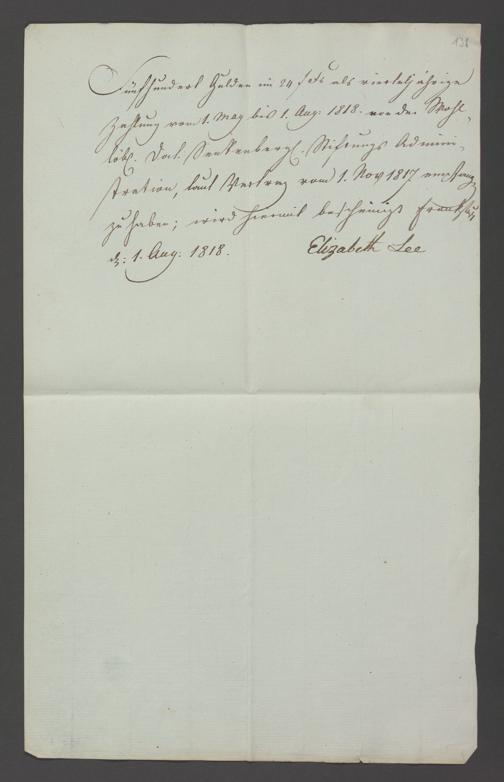 138
Fünfhundert Gulden im 24 f Fs als vierteljährige
Zahlung vom 1. May bis 1. Aug: 1818. von der Wohl-
löbl. Doct. Senkenbergl. Stiftungs Admini-
stration, laut Vertrag vom 1. Nov 1817 empfang
zu haben; wird hiermit bescheinigt Frankfurt
d: 1. Aug: 1818.
Elizabeth Lee